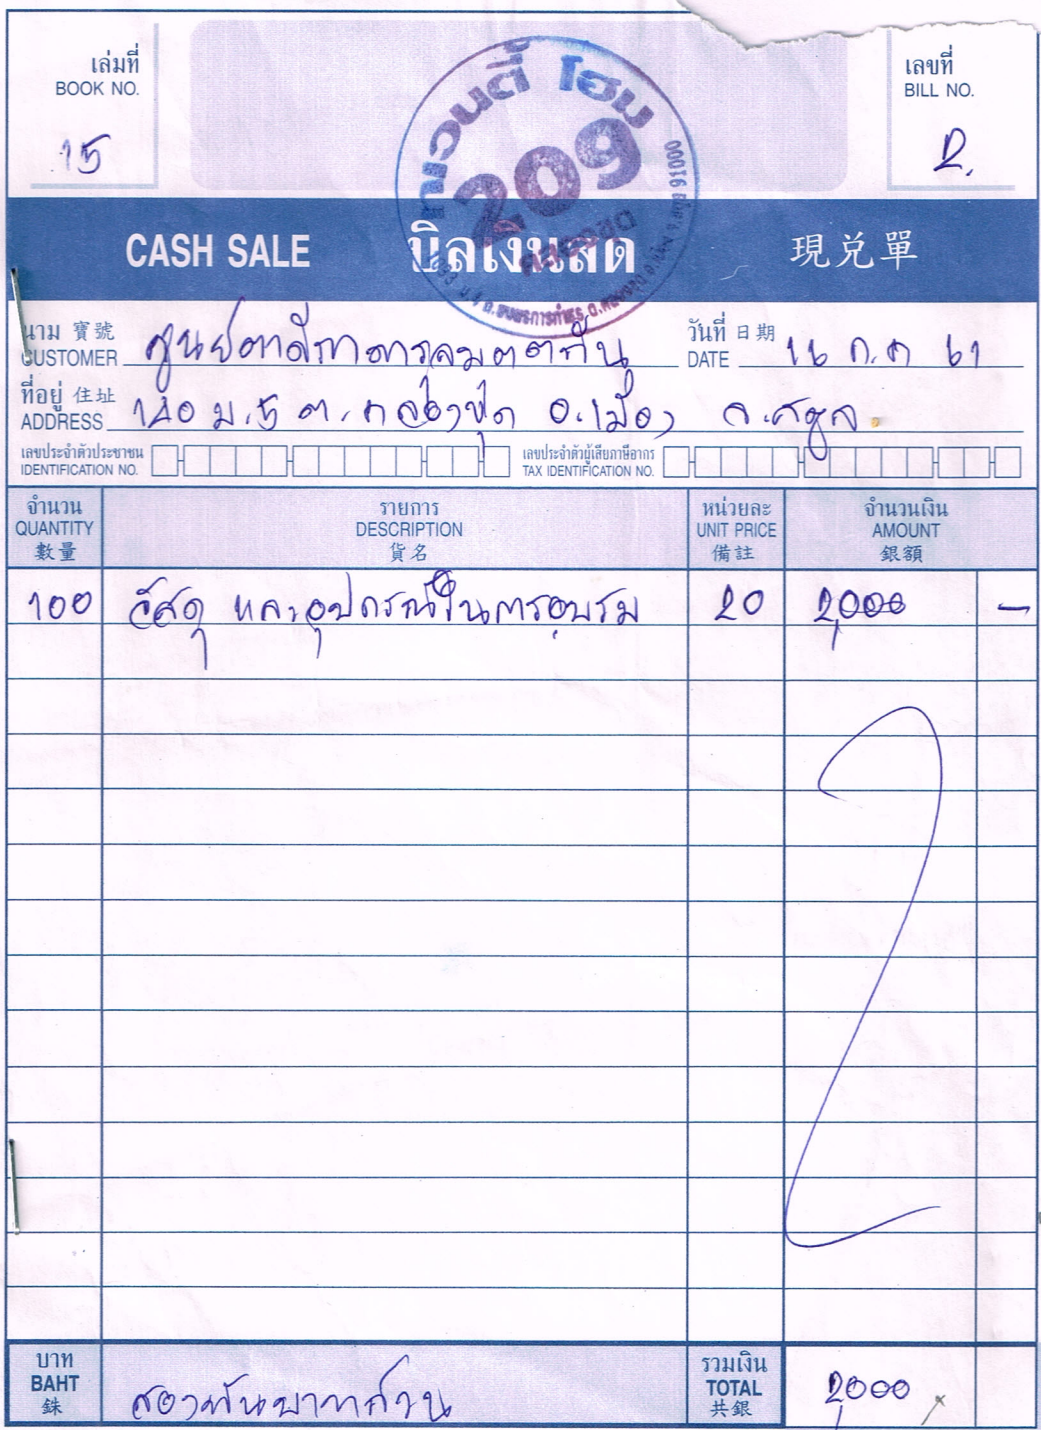 เล่มที่
BOOK NO.
15
เลขที่
BILL NO.
2.
ทเวนตี้ โฮม
209
คลองขุด
จ.สตูล 91000
CASH SALE บิลเงินสด 現兌單
นาม 寶號
CUSTOMER
วันที่ 日期
DATE 16 ก.ค 61
ที่อยู่ 住址
ADDRESS 120 ม.5 ต.คลองขุด อ.เมือง จ.สตูล.
เลขประจำตัวประชาชน
IDENTIFICATION NO.
เลขประจำตัวผู้เสียภาษีอากร
TAX IDENTIFICATION NO.
จำนวน
QUANTITY
數量
รายการ
DESCRIPTION
貨名
หน่วยละ
UNIT PRICE
備註
จำนวนเงิน
AMOUNT
銀額
100 วัสดุ และอุปกรณ์ในการอบรม 20 2,000 -
บาท
BAHT
銖
สองพันบาทถ้วน
รวมเงิน
TOTAL
共銀
2,000